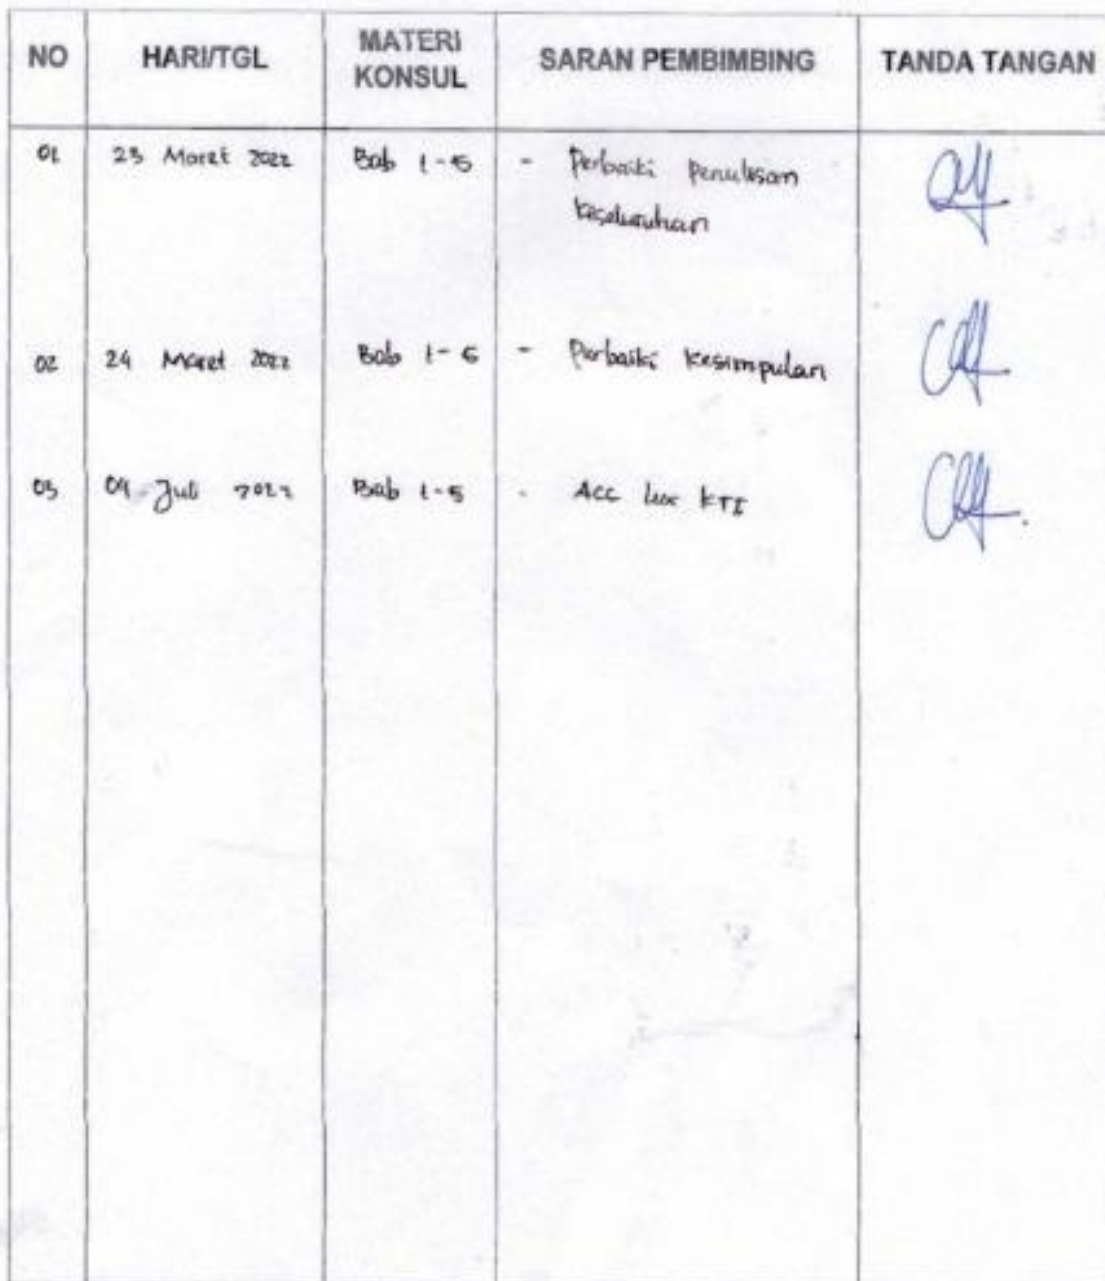 NO HARI/TGL MATERI KONSUL SARAN PEMBIMBING TANDA TANGAN
01 23 Maret 2022 Bab 1-5 - Perbaiki Penulisan
keseluruhan
02 24 Maret 2022 Bab 1-5 - Perbaiki kesimpulan
03 Juli 2022 Bab 1-5 - Acc KTI